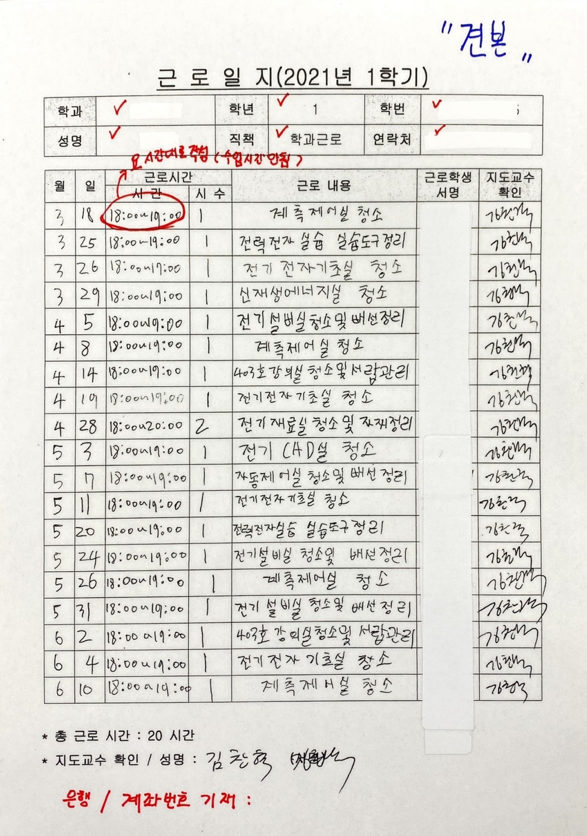 "견본"
근 로 일 지(2021년 1학기)
학과 학년 1 학번
성명 직책 학과근로 연락처
요 시간대로 작성 (수업시간 안됨)
월 일 근로시간 근로 내용 근로학생 서명 지도교수 확인
시 간 시 수
3 18 18:00~19:00 1 계측제어실 청소
3 25 18:00~19:00 1 전력전자 실습 실습도구정리
3 26 18:00~19:00 1 전기 전자기초실 청소
3 29 18:00~19:00 1 신재생에너지실 청소
4 5 18:00~19:00 1 전기 설비실 청소및 배선정리
4 8 18:00~19:00 1 계측제어실 청소
4 14 18:00~19:00 1 403호 강의실 청소및 서랍관리
4 19 18:00~19:00 1 전기전자 기초실 청소
4 28 18:00~20:00 2 전기재료실 청소및 자재정리
5 3 18:00~19:00 1 전기 CAD실 청소
5 7 18:00~19:00 1 자동제어실 청소및 배선 정리
5 11 18:00~19:00 1 전기전자기초실 청소
5 20 18:00~19:00 1 전력전자실습 실습도구정리
5 24 18:00~19:00 1 전기설비실 청소및 배선정리
5 26 18:00~19:00 1 계측제어실 청소
5 31 18:00~19:00 1 전기 설비실 청소및 배선정리
6 2 18:00~19:00 1 403호 강의실청소및 서랍관리
6 4 18:00~19:00 1 전기전자 기초실 청소
6 10 18:00~19:00 1 계측제어실 청소
* 총 근로 시간 : 20 시간
* 지도교수 확인 / 성명 : 김찬혁
은행 / 계좌번호 기재 :